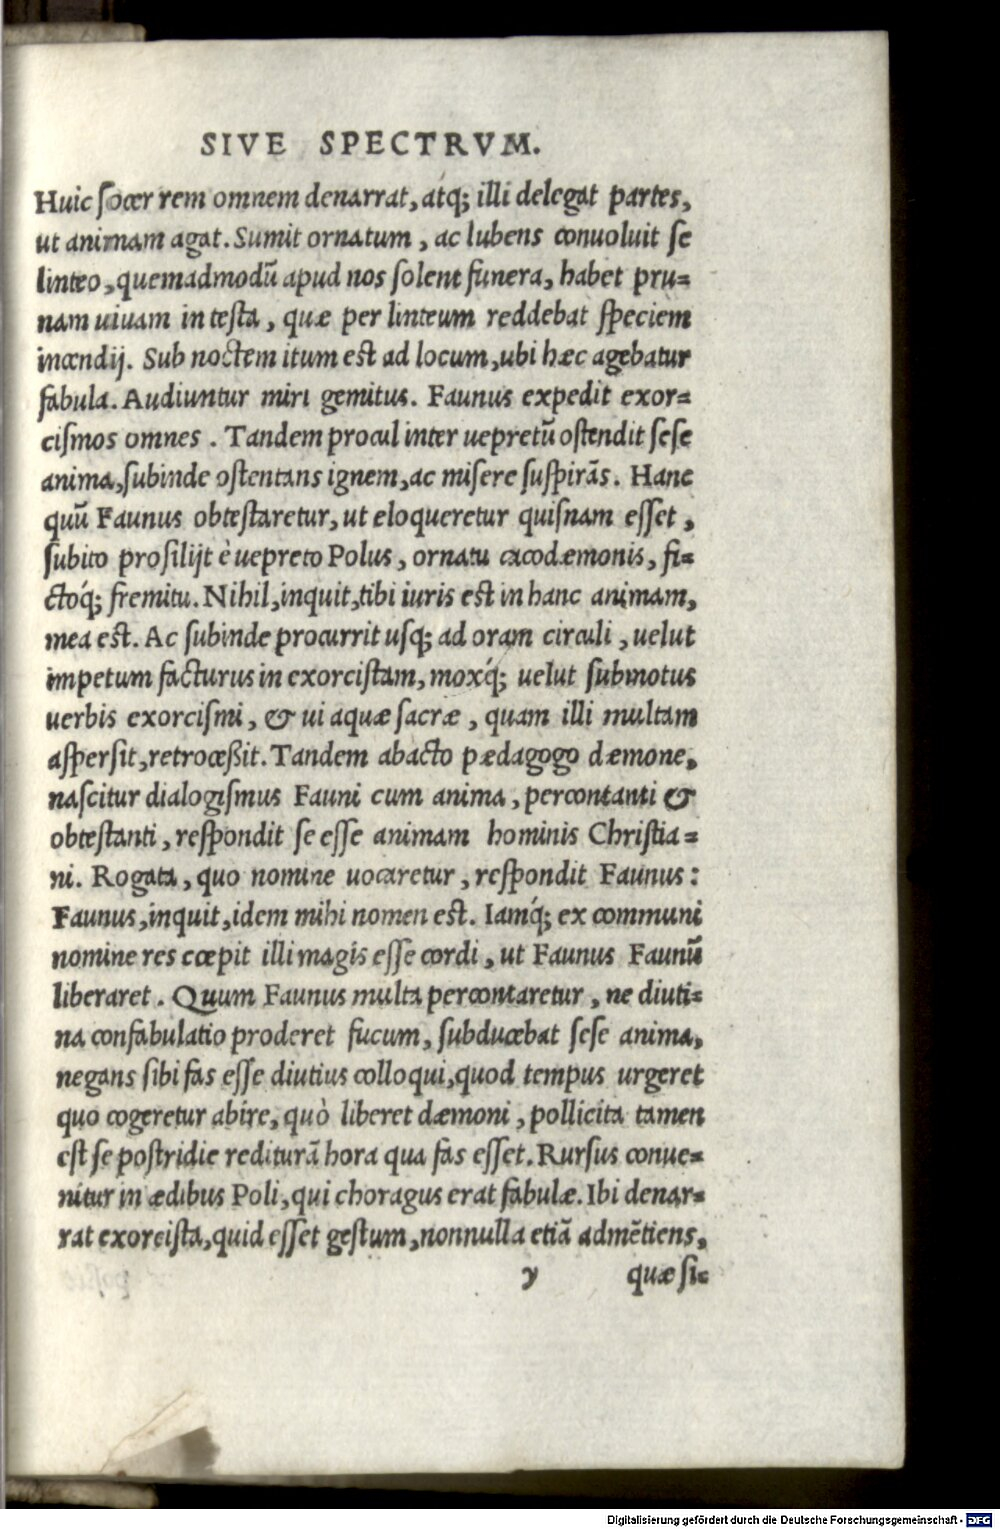 SIVE SPECTRVM.
Huic socer rem omnem denarrat, atq́; illi delegat partes,
ut animam agat. Sumit ornatum, ac lubens conuoluit se
linteo, quemadmodū apud nos solent funera, habet pru=
nam uiuam in testa, quæ per linteum reddebat speciem
incendij. Sub noctem itum est ad locum, ubi hæc agebatur
fabula. Audiuntur miri gemitus. Faunus expedit exor=
cismos omnes. Tandem procul inter uepretū ostendit sese
anima, subinde ostentans ignem, ac misere suspirās. Hanc
quū Faunus obtestaretur, ut eloqueretur quisnam esset,
subito prosilijt è uepreto Polus, ornatu cacodæmonis, fi=
ctoq́; fremitu. Nihil, inquit, tibi iuris est in hanc animam,
mea est. Ac subinde procurrit usq; ad oram circuli, uelut
impetum facturus in exorcistam, moxq́; uelut submotus
uerbis exorcismi, & ui aquæ sacræ, quam illi multam
aspersit, retroceßit. Tandem abacto pædagogo dæmone,
nascitur dialogismus Fauni cum anima, percontanti &
obtestanti, respondit se esse animam hominis Christia=
ni. Rogata, quo nomine uocaretur, respondit Faunus:
Faunus, inquit, idem mihi nomen est. Iamq́; ex communi
nomine res cœpit illi magis esse cordi, ut Faunus Faunū
liberaret. Quum Faunus multa percontaretur, ne diuti=
na confabulatio proderet fucum, subducebat sese anima,
negans sibi fas esse diutius colloqui, quod tempus urgeret
quo cogeretur abire, quò liberet dæmoni, pollicita tamen
est se postridie rediturā hora qua fas esset. Rursus conue=
nitur in ædibus Poli, qui choragus erat fabulæ. Ibi denar=
rat exorcista, quid esset gestum, nonnulla etiā admētiens,
y quæ si=
Digitalisierung gefördert durch die Deutsche Forschungsgemeinschaft - DFG